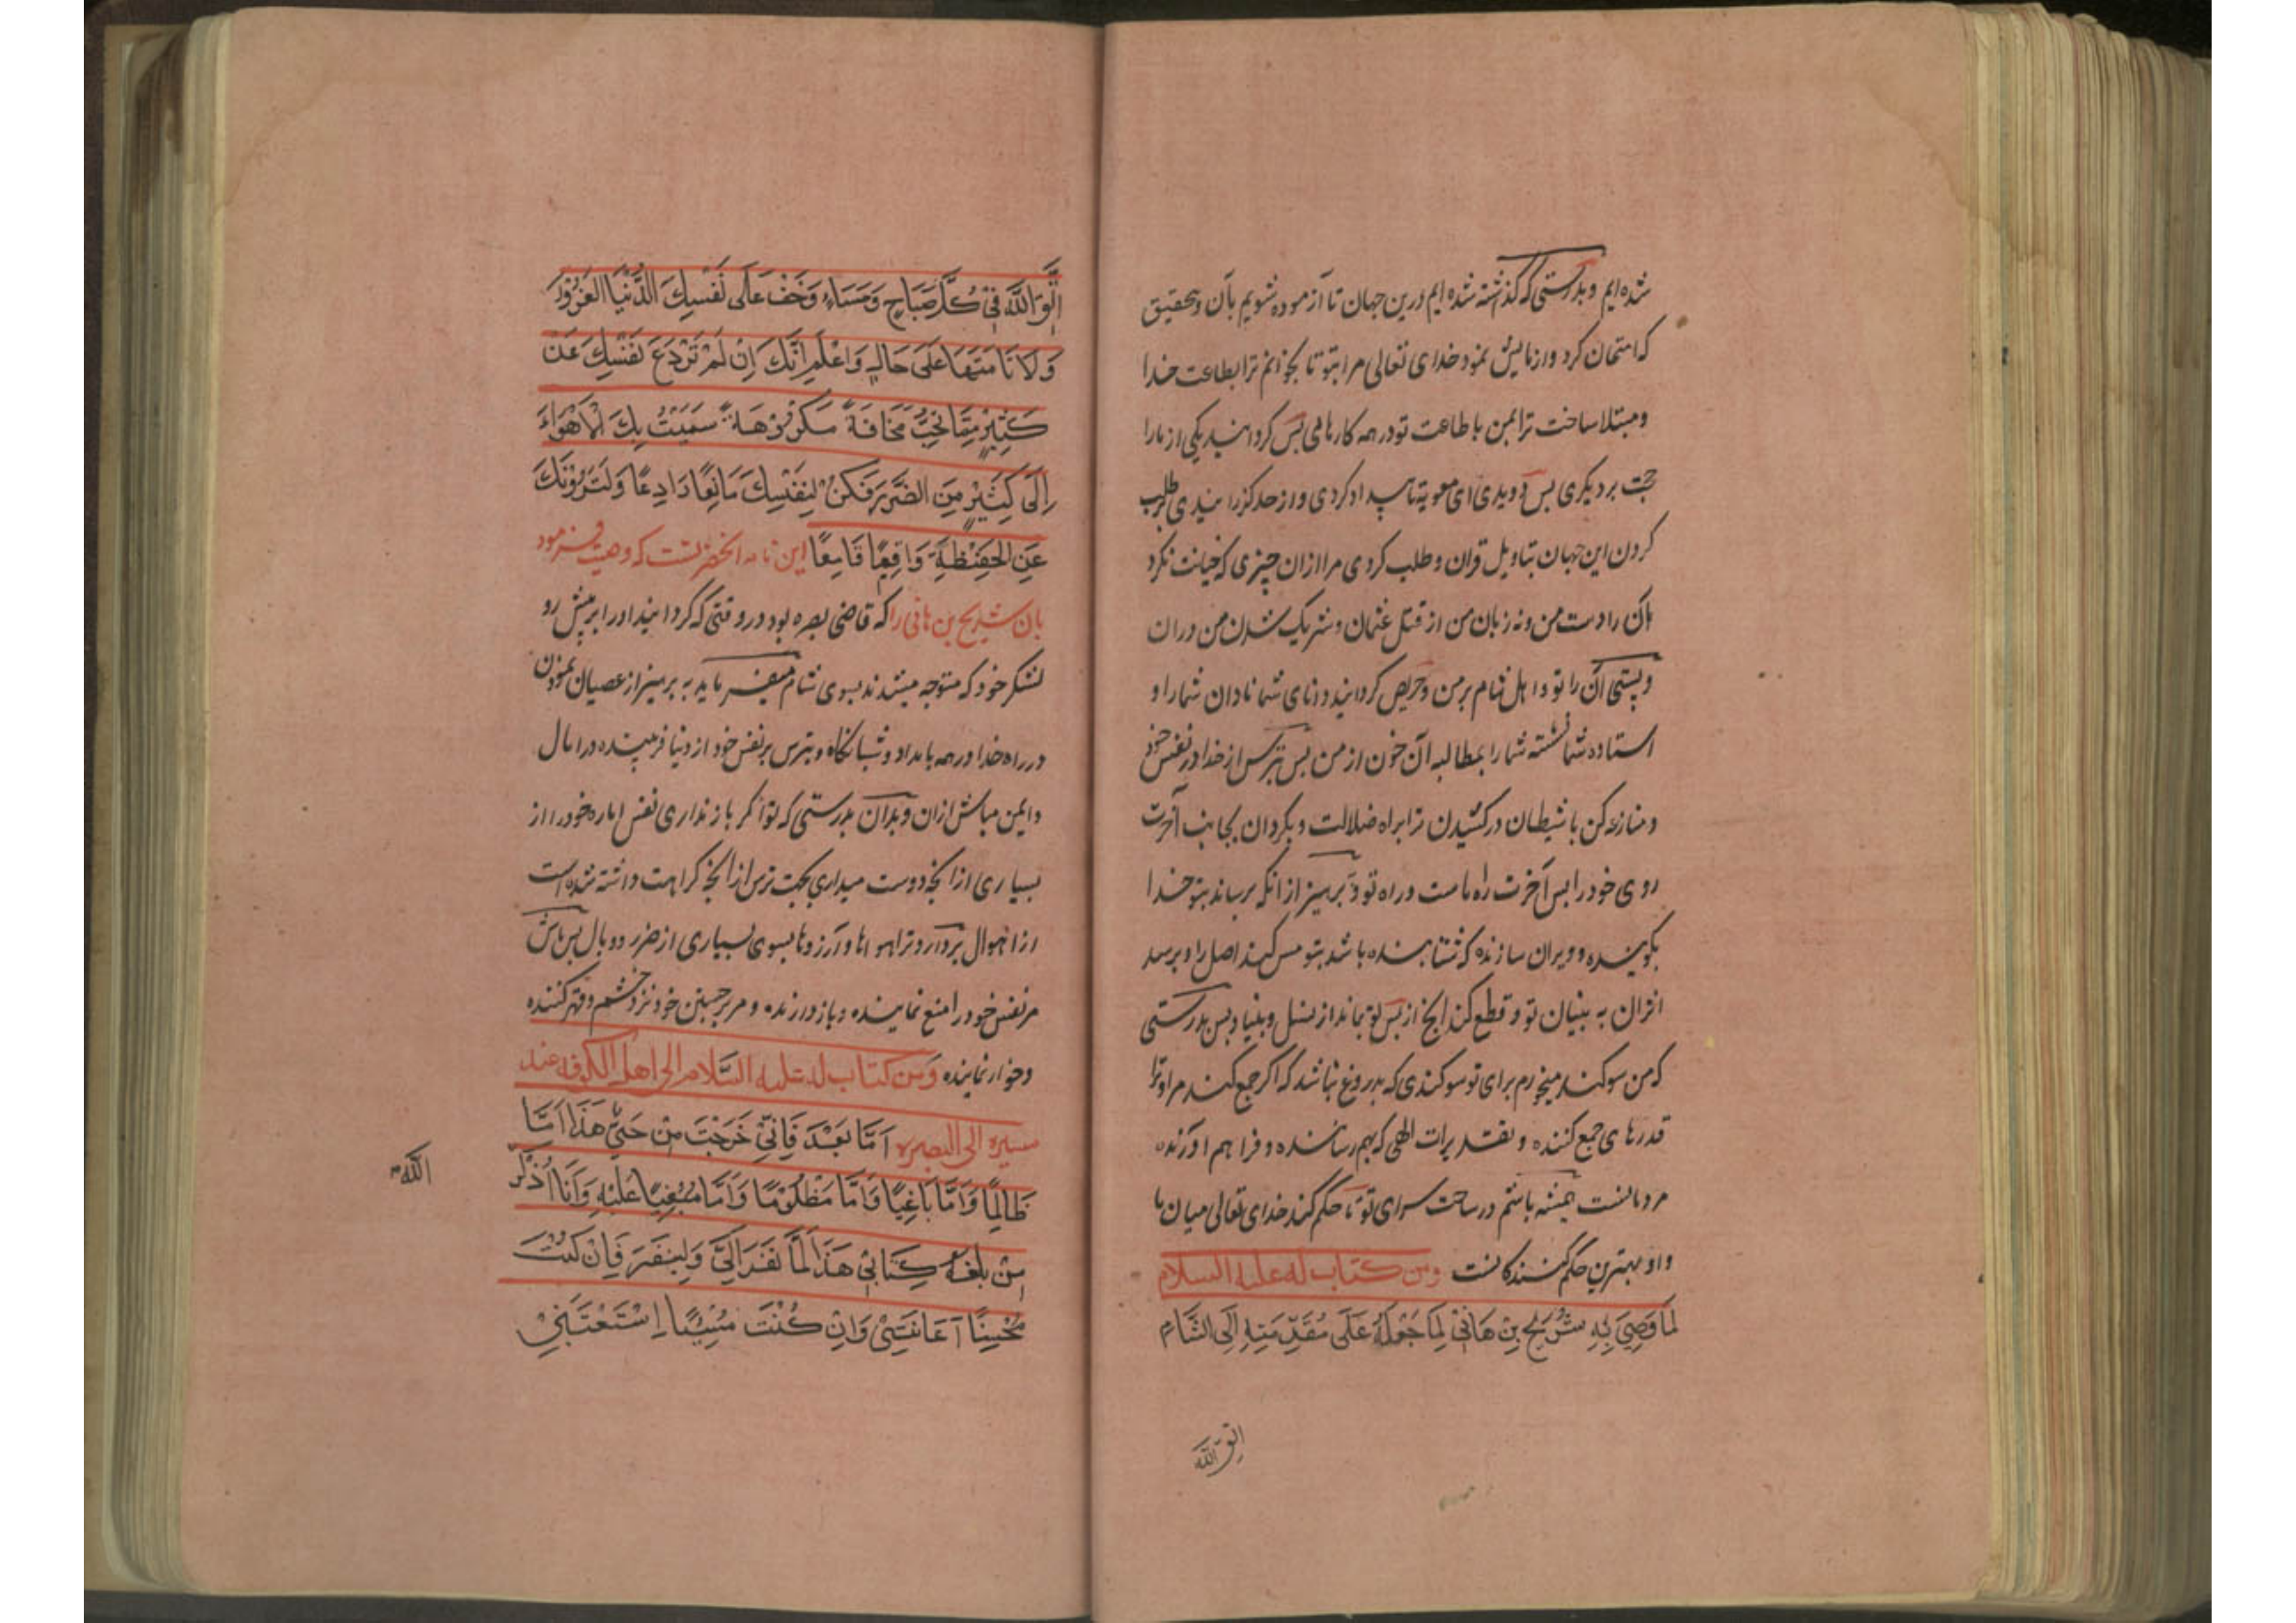 شده ایم و بدرستی که گذاشته شده ایم درین جهان تا آزموده شویم بآن و بتحقیق
که امتحان کرد و ازمایش نمود خدای تعالی مرا بتو تا بخوانم ترا بطاعت خدا
و مبتلا ساخت ترا بمن با طاعت تو در همه کارها پس کردانید یکی از ما را
حجت بر دیکری پس دویدی ای معویه تا بیداد کردی و از حد گذرانیدی طلب
کردن این جهان بتاویل قران و طلب کردی مرا ازان چیزی که خیانت نکرد
آن را دست من و نه زبان من از قتل عثمان و شریک شدن من دران
و بستی آن را تو و اهل شام بر من و حریص کردانید دانای شما نادان شما را و
استاده شما نشسته شما را بمطالبه آن خون از من پس بترس از خدا در نفس خود
و منازعه کن با شیطان در کشیدن ترا براه ضلالت و بگردان بجانب آخرت
روی خود را پس آخرت راه ماست و راه تو و بپرهیز از انکه برساند بتو خدا
بکوبنده و ویران سازنده که شتابنده باشد بتو مس کند اصل را و برسد
اثران به بنیان تو و قطع کند انچ از پس تو بماند از نسل و بنیاد پس بدرستی
که من سوکند میخورم برای تو سوکندی که بدروغ نباشد که اکر جمع کند مرا و ترا
قدرهای جمع کننده و تقدیرات الهی که بهم رساننده و فراهم اورنده
مردمانست همیشه باشم در ساحت سرای تو تا حکم کند خدای تعالی میان ما
و او بهترین حکم کنندکانست ومن كتاب له عليه السلام
لَمَّا وَصَّى بِهِ شُرَيْحِ بْنِ هَانِئ لَمَّا جَعَلَهُ عَلَى مُقَدِّمَتِهِ إِلَى الشَّامِ
اتق الله
اِتَّقِ اللَّهَ فِي كُلِّ صَبَاحٍ وَمَسَاءٍ وَخَفْ عَلَى نَفْسِكَ الدُّنْيَا الْغَرُورَ
وَلَا تَأْمَنْهَا عَلَى حَالٍ وَاعْلَمْ أَنَّكَ إِنْ لَمْ تَرْدَعْ نَفْسَكَ عَنْ
كَثِيرٍ مِمَّا تُحِبُّ مَخَافَةَ مَكْرُوهَةٍ سَمَتْ بِكَ الْأَهْوَاءُ
إِلَى كَثِيرٍ مِنَ الضَّرَرِ فَكُنْ لِنَفْسِكَ مَانِعًا رَادِعًا وَلِنَزْوَتِكَ
عَنِ الْحَفِيظَةِ وَاقِمًا قَامِعًا این نامه انحضرتست که وصیت فرمود
بان شریح بن هانی را که قاضی بصره بود در وقتی که کردانید او را بر پیش رو
لشکر خود که متوجه میشدند بسوی شام میفرماید به پرهیز از عصیان نمودن
در راه خدا در همه بامداد و شبانکاه و بترس بر نفس خود از دنیا فریبنده در امال
و ایمن مباش ازان و بدان بدرستی که تو اکر باز نداری نفس اماره خود را از
بسیاری از انچه دوست میداری بجهت ترس از انچه کراهت داشته شده است
از اهوال بردارد ترا هواها و آرزوها بسوی بسیاری از ضرر و وبال پس باش
مر نفس خود را منع نماینده و باز دارنده و مر برجستن خود نزد خشم و قهر کننده
و خوار نماینده ومن كتاب له عليه السلام الى اهل الكوفه عند
مسيره الى البصره اَمَّا بَعْدَ فَاِنِّي خَرَجْتَ مِنْ حَيِّي هَذَا اَمَّا
ظَالِمًا وَاَمَّا بَاغِيًا وَاَمَّا مَظْلُومًا وَاَمَّا مَبْغِيًا عَلَيْهِ وَاَنَا اُذَكِّرُ
الله
مَنْ بَلَغَهُ كِتَابِي هَذَا لَمَّا نَفَرَ اِلَيَّ وَلِيَنْفَرَ فَاِنْ كُنْتَ
مُحْسِنًا اَعَانَنِي وَاِنْ كُنْتَ مُسِيئًا اِسْتَعْتَبَنِي